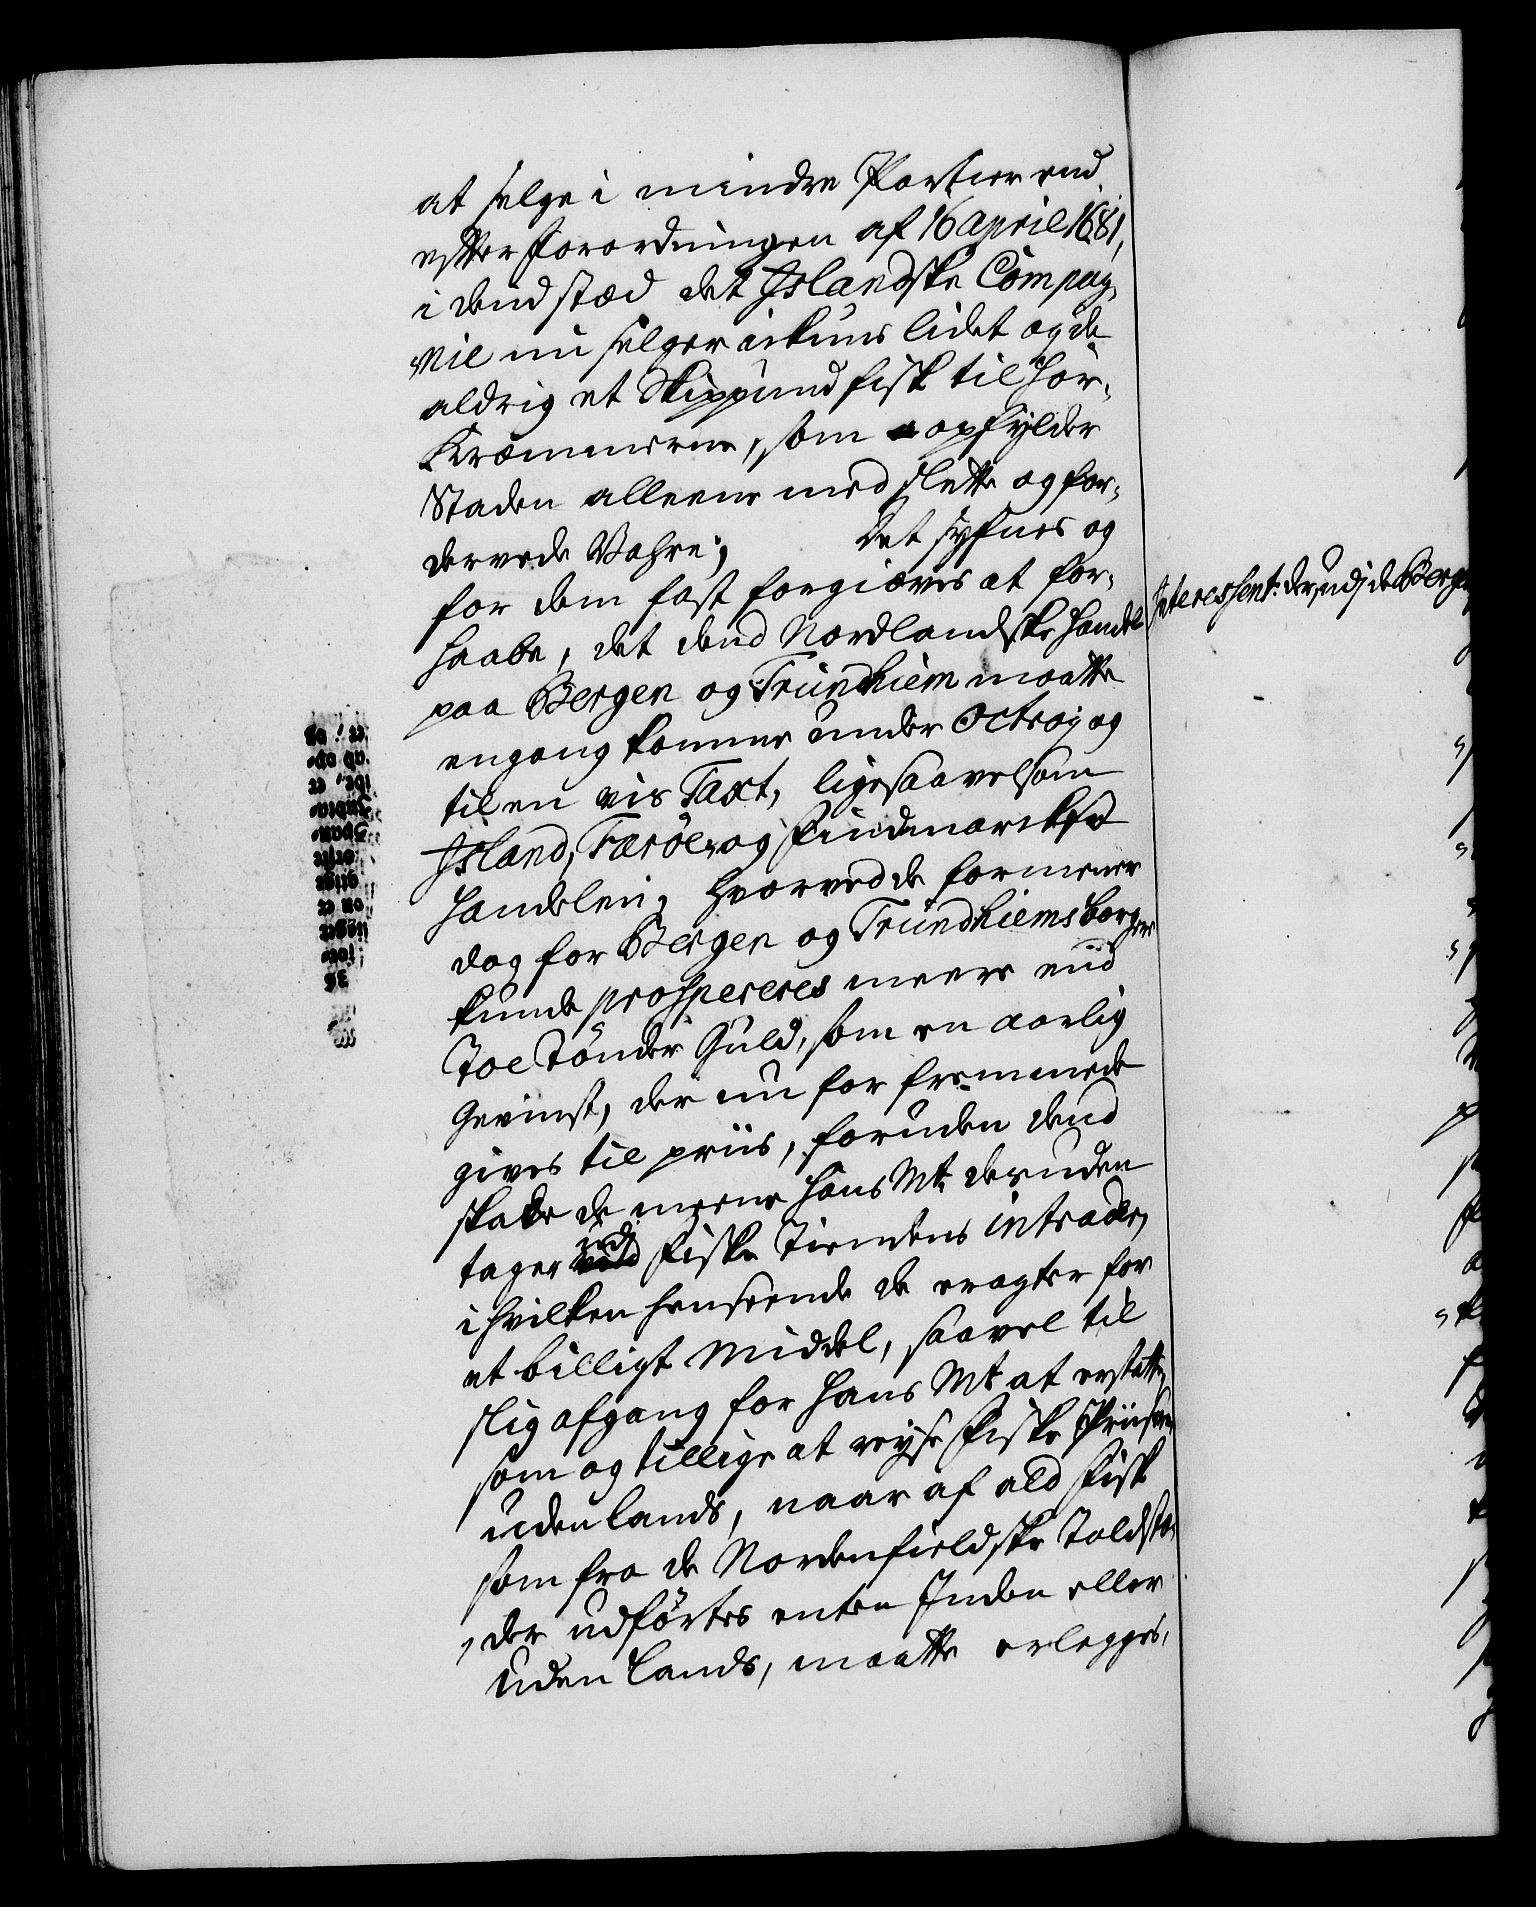 at selge i mindre Partier end
efter Forordningen af 16 april 1681,
i dend stæd det Islandske Compag„
nie nu selger ickuns lidet og de
aldrig et Skippund fisk til Hør„
Kræmmerne, som opfylder
Staden alleene med slette og for„
dervede Vahre; Det syfnes og
for dem fast forgiæves at for„
haabe, det dend Nordlandske Handel
paa Bergen og Trundhiem maatte
engang komme under Octroj og
til en vis Taxt, ligesaavelsom
Island, Færöe, og Findmarckse
Handelen; Hvorved de formener
dog for Bergen og Trundhiems borgere
kunde prospereres meere end
Toe Tönder Guld, som en aarlig
Gevinst, der nu for fremmede
gives til priis, foruden dend
skade de meene Hans Mt. desuden
tager udj Fiske Tiendens intrader,
i hvilken henseende de eragter for
et billigt Middel, saavel til
slig afgang for Hans Mt at erstatte,
som og tillige at reyse Fiske Priisen
uden lands, naar af ald Fisk
som fra de Nordenfieldske Toldstæ„
„der udförtes enten Inden eller
Uden Lands, maatte erlegges,
Interessent: der, udj de Berge